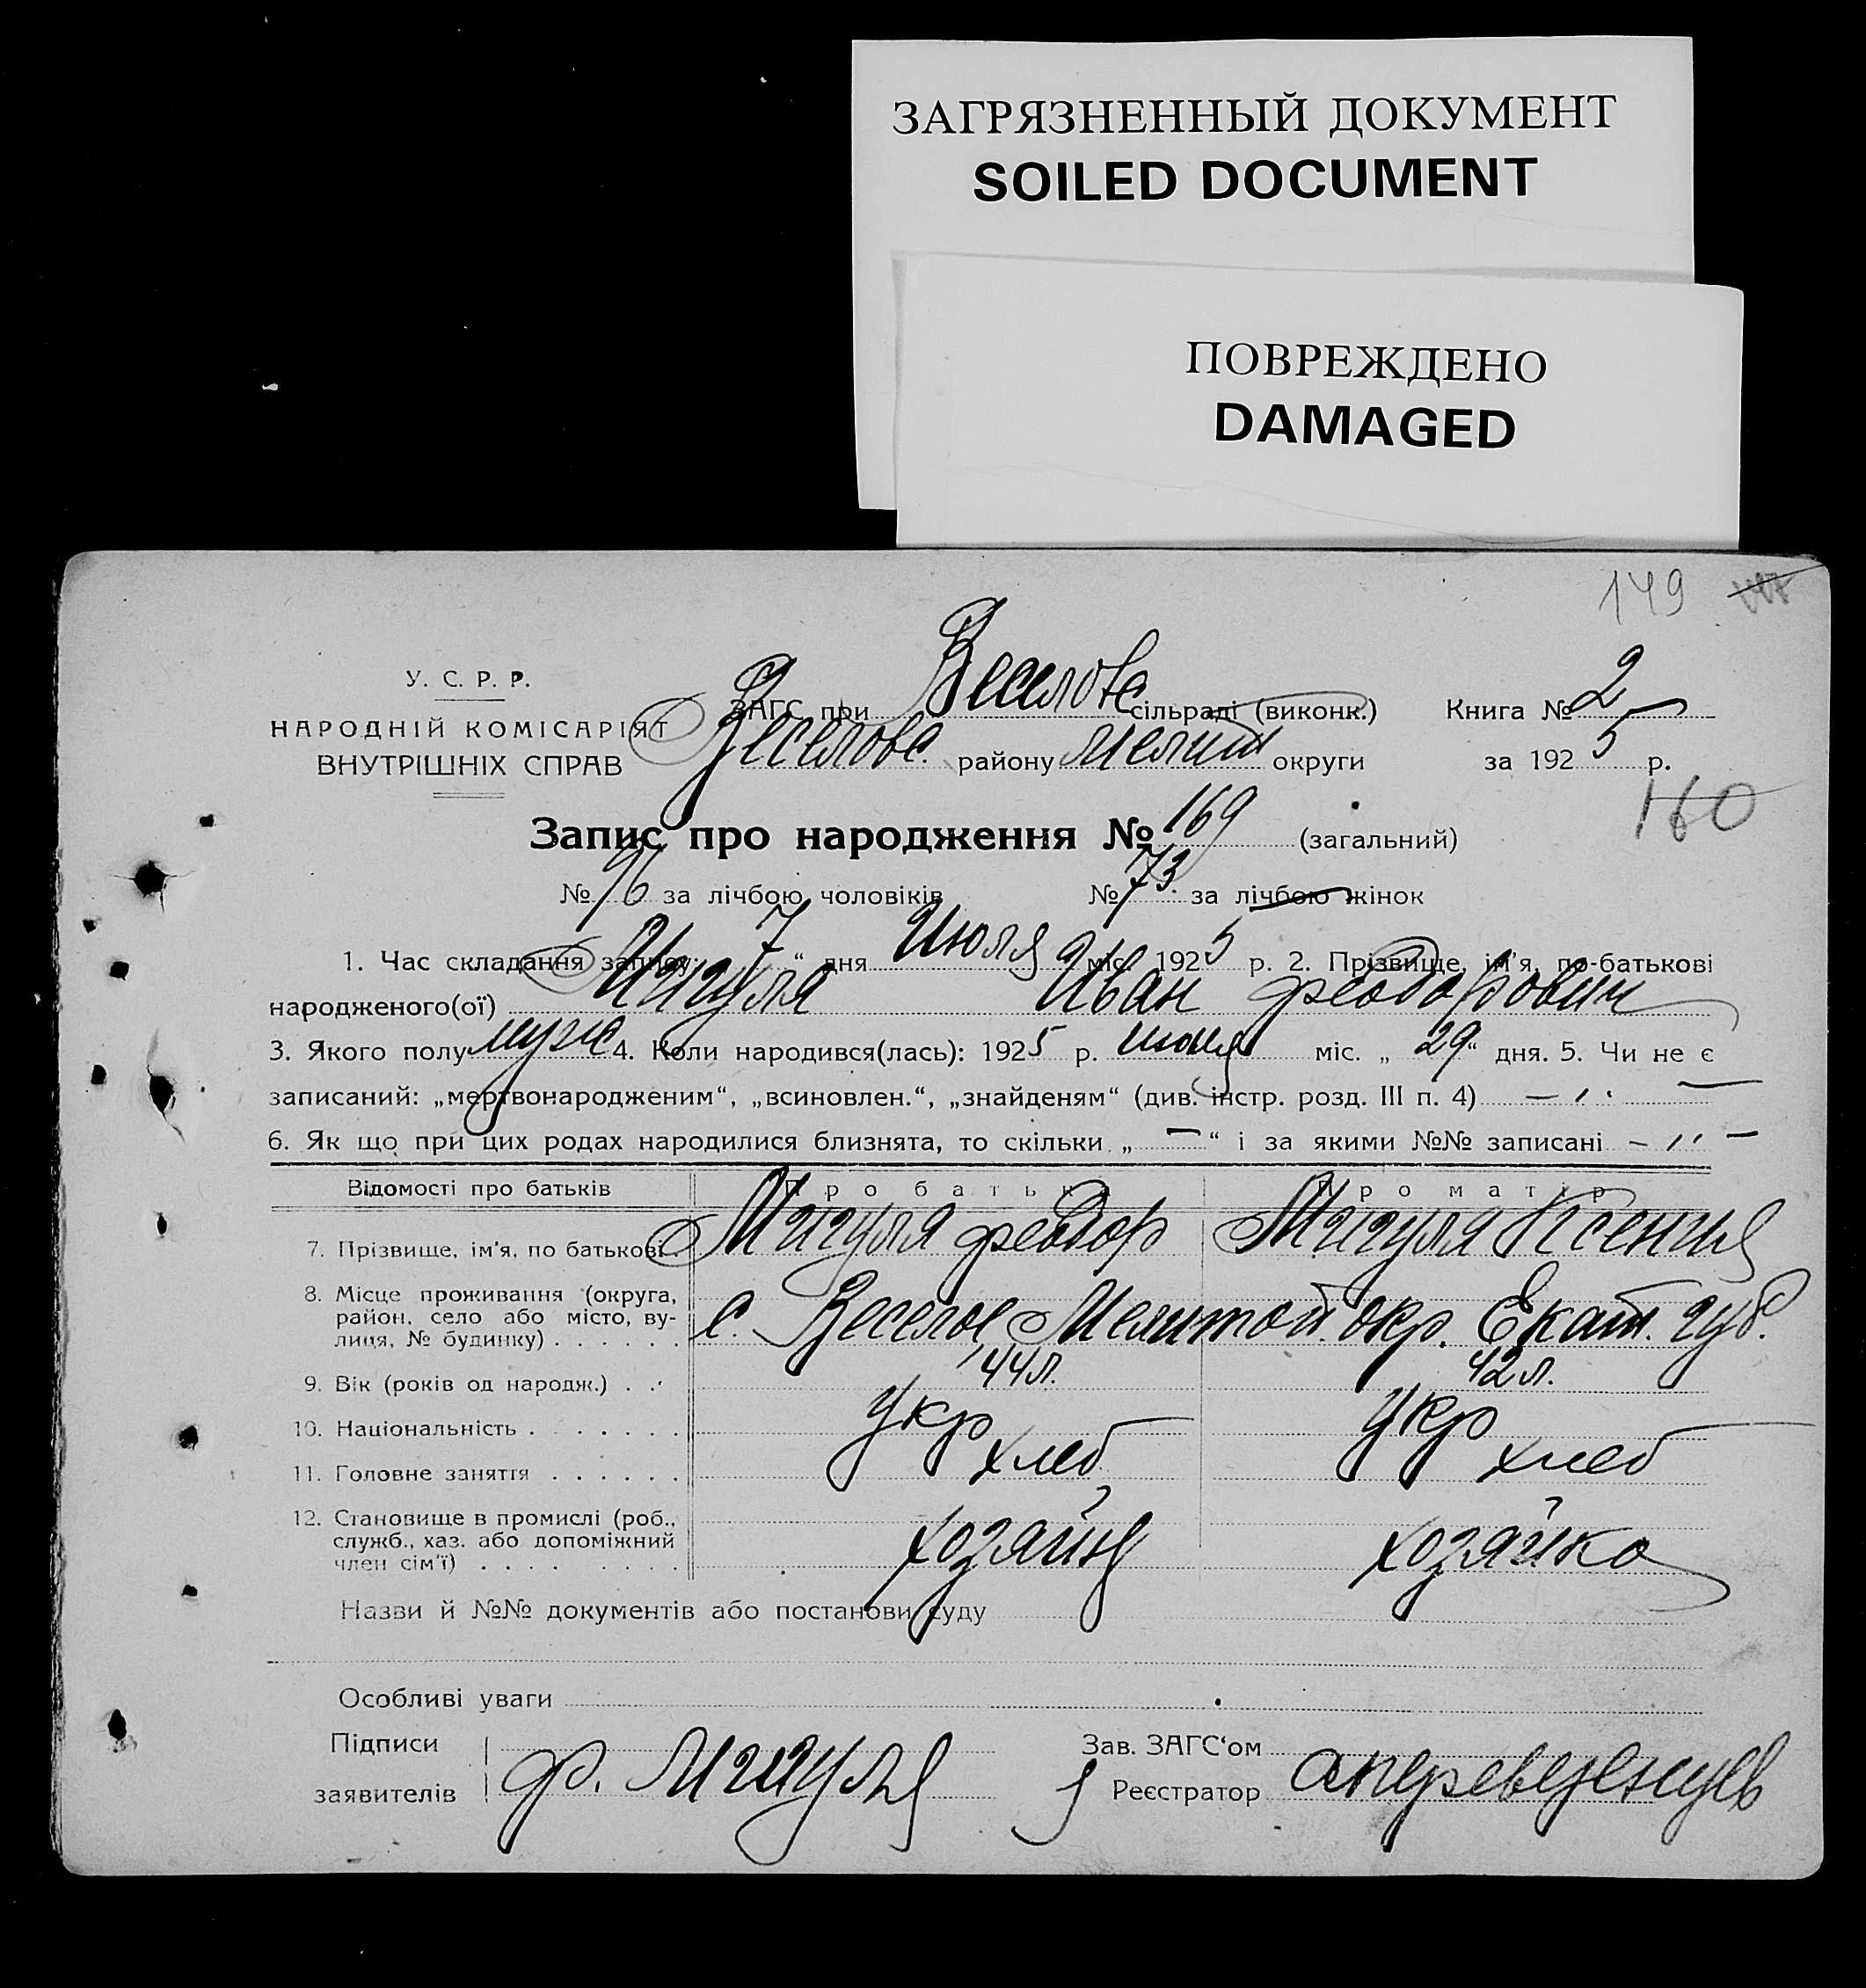 ЗАГРЯЗНЕННЫЙ ДОКУМЕНТ
SOILED DOCUMENT
ПОВРЕЖДЕНО
DAMAGED
149
У. С. Р. Р.
НАРОДНІЙ КОМІСАРІЯТ
ВНУТРІШНІХ СПРАВ
ЗАГС при Веселовс сільраді (виконк.) Книга № 2
Веселовс. району Мелит округи за 1925 р.
160
Запис про народження № 169 (загальний)
№ 96 за лічбою чоловіків № 73 за лічбою жінок
1. Час складання запису: 7 “ дня Июля міс. 1925 р. 2. Прізвище, ім'я, по-батькові
народженого(ої) Мигуля Иван Феодорович
3. Якого полу муж 4. Коли народився(лась): 1925 р. июня міс. „ 29 “ дня. 5. Чи не є
записаний: „мертвонародженим“, „всиновлен.“, „знайденям“ (див. інстр. розд. III п. 4) — ,, —
6. Як що при цих родах народилися близнята, то скільки „ — “ і за якими №№ записані – ,, –
Відомості про батьків Про батька Про матір
7. Прізвище, ім'я, по батькові Мигуля Феодор Мигуля Ксения
8. Місце проживання (округа,
район, село або місто, ву-
лиця, № будинку) с. Веселое Мелитоп. окр. Екат. губ.
9. Вік (років од народж.) 44 л. 42 л.
10. Національність укр укр
11. Головне заняття хлеб хлеб
12. Становище в промислі (роб.,
служб., хаз. або допоміжний
член сім'ї) хозяин хозяйка
Назви й №№ документів або постанови суду
Особливі уваги
Підписи
заявителів Ф. Мигуля
Зав. ЗАГС‘ом
Реєстратор